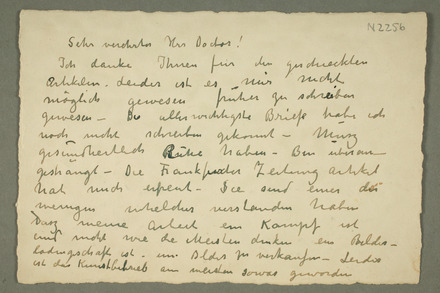 N 2256
Sehr verehrter Herr Doctor!
Ich danke Ihnen für den geschickten
Artikeln. Leider ist es mir nicht
möglich gewesen früher zu schreiben
gewesen – Die allerwichtigste Briefe habe ich
noch nicht schreiben gekonnt – Muss
gesundheitlich Ruhe haben – Bin
– Die Frankfurter Zeitung artikel
hat mich erfreut – Sie sind einer der
wenigen welcher verstanden haben
Dass meine Arbeit ein Kampf ist
und nicht wie die Meisten denken ein
ist – um Bilder zu verkaufen – Leider
ist der Kunstbetrieb am meisten sowas geworden